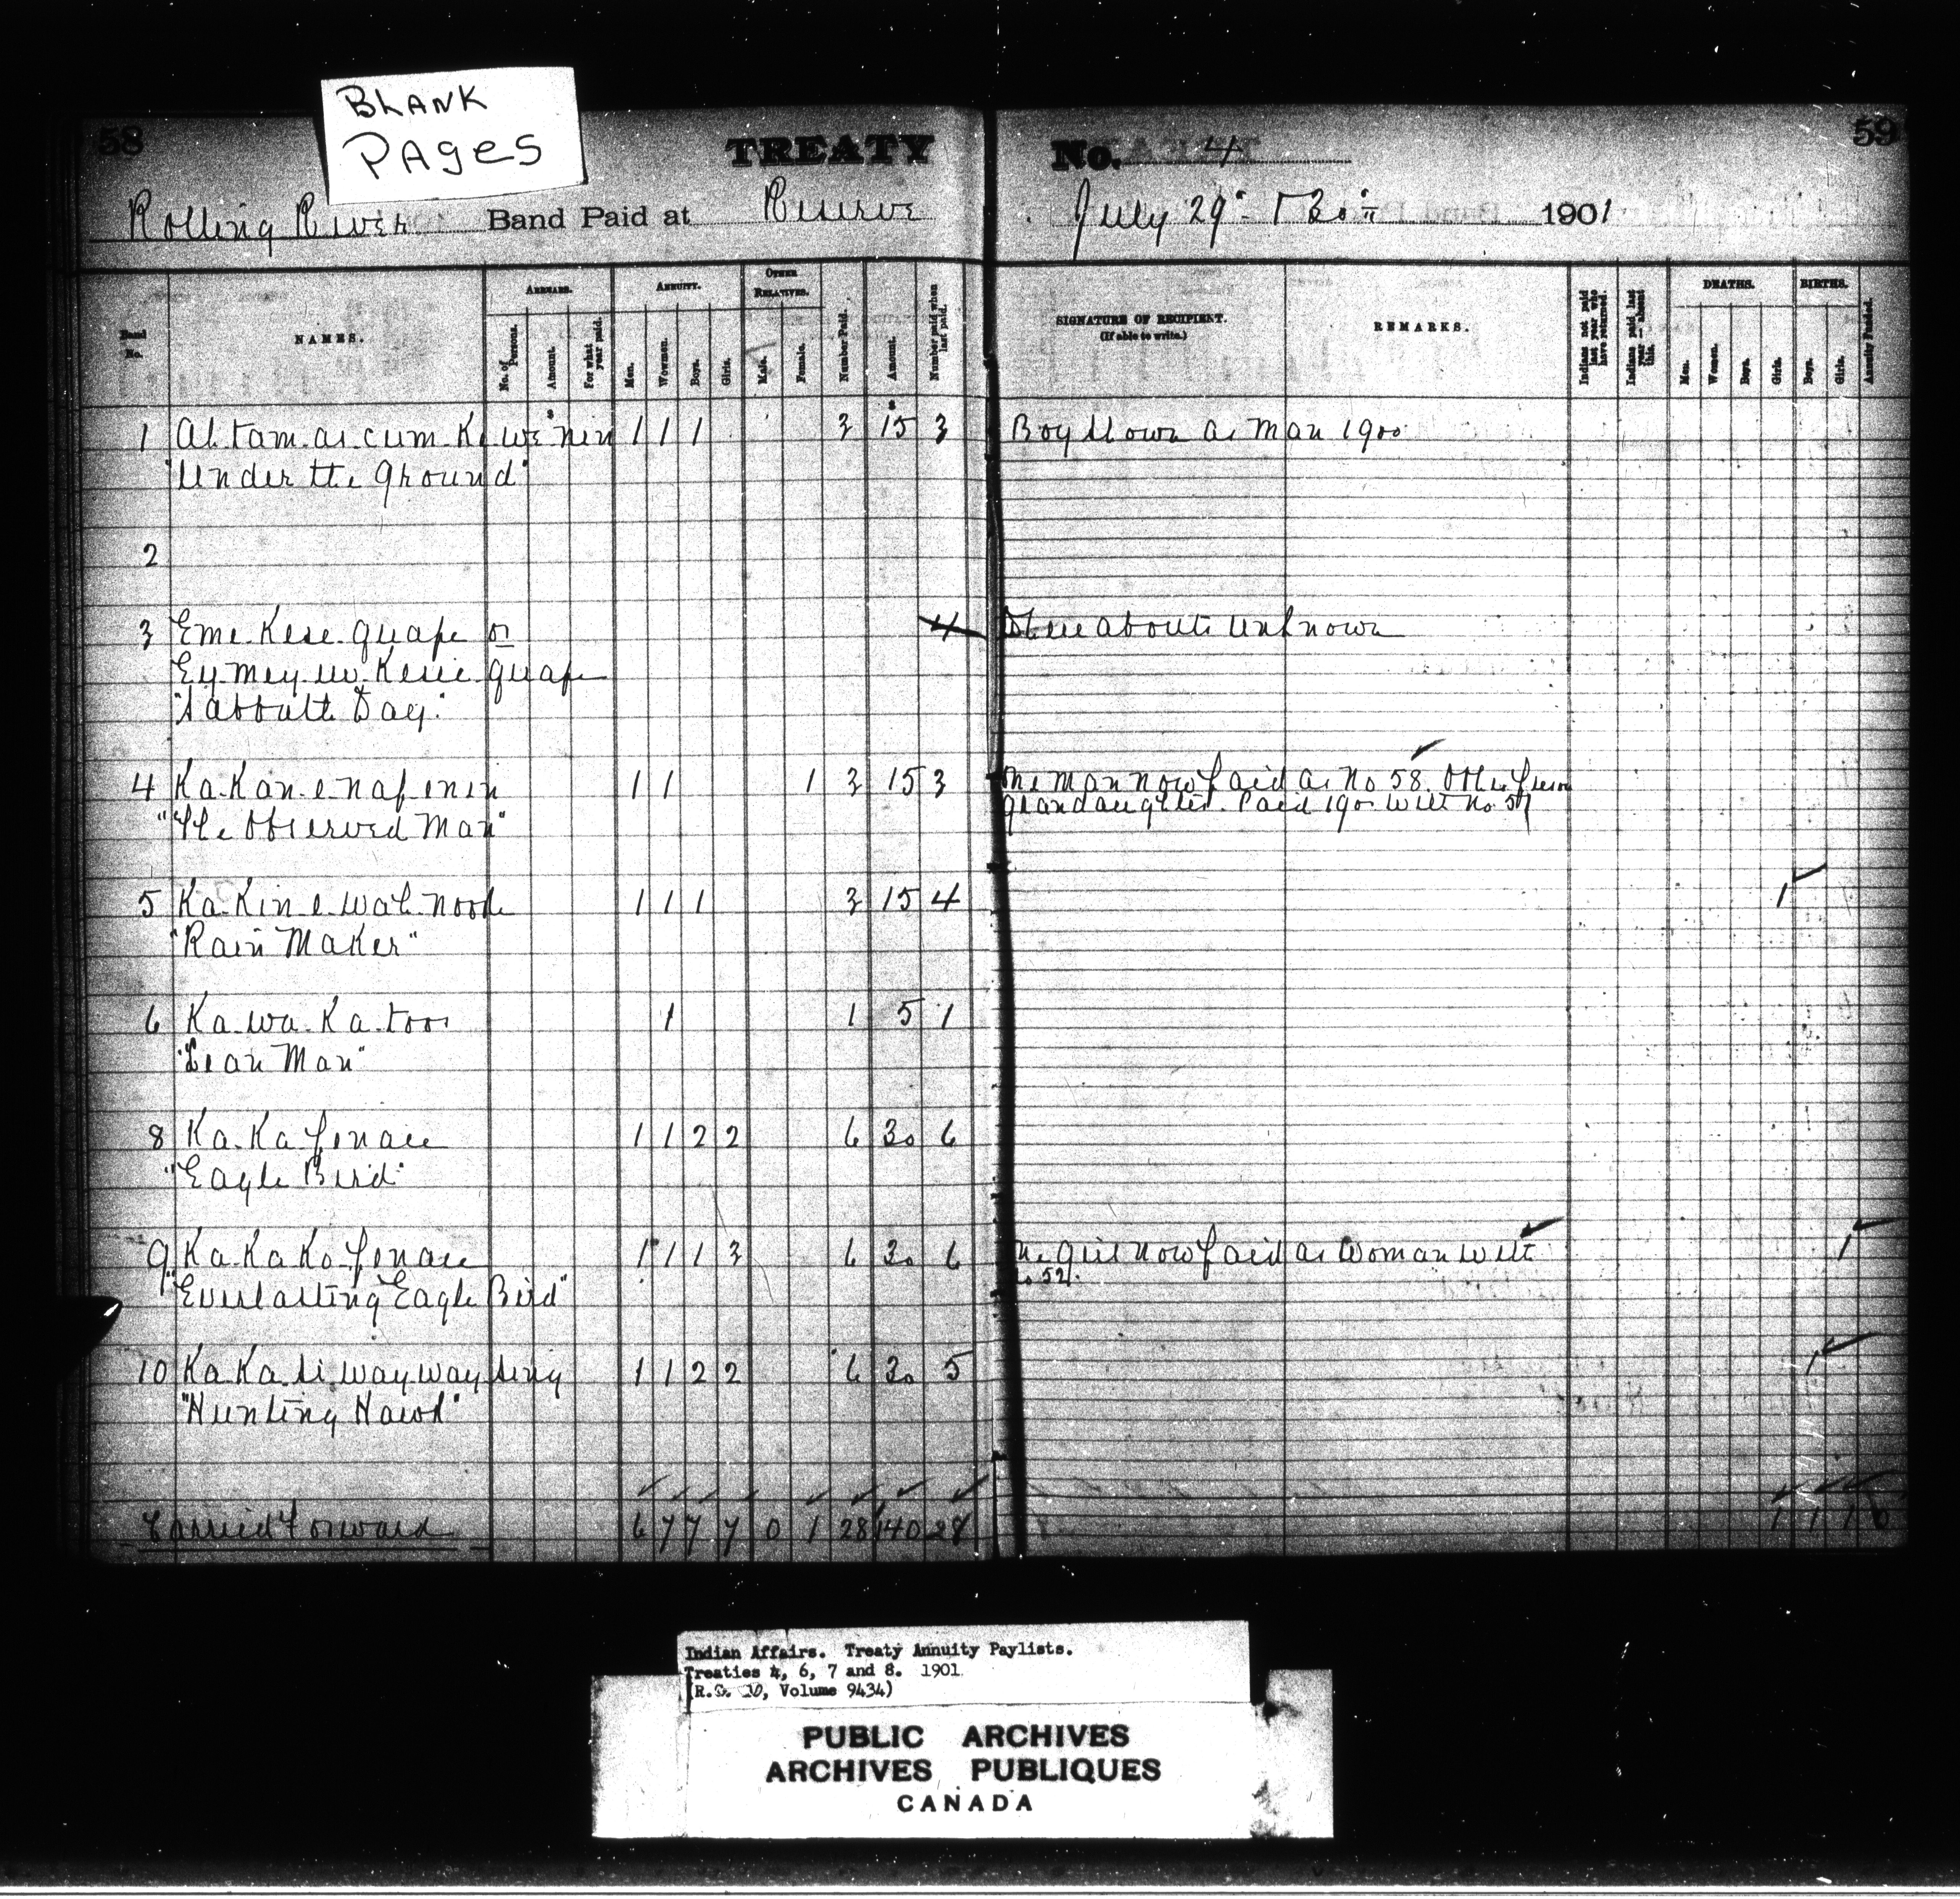 BLANK
PAGES
58
TREATY
No. 4
59
Rolling River Band Paid at Reserve
July 29th & 30th 1901
Band No.
NAMES.
ARREARS.
No. of Persons.
Amount.
For what year paid.
ANNUITY.
Men.
Women.
Boys.
Girls.
OTHER RELATIVES.
Male.
Female.
Number Paid.
Amount.
Number paid when last paid.
SIGNATURE OF RECIPIENT.
(If able to write.)
REMARKS.
Indians not paid last year who have returned.
Indians paid last year - absent this.
DEATHS.
Men.
Women.
Boys.
Girls.
BIRTHS.
Boys.
Girls.
Annuity Funded.
1 Ah.tam.as.cum.K. we nin 1 1 1 3 $15 3 Boy shown as Man 1900
"Under the Ground"
2
3 Eme.Kese.quape or 4 Whereabouts unknown
Ey.mey.uw.Kesie quape
"Sabbath Day."
4 Ka.Kan.e.nap.enin 1 1 1 3 15 3 One man now paid as No 58. Other person
"The Observed Man" grandaughter. Paid 190 with No. 57
5 Ka.Kin.e.wah.noosh 1 1 1 3 15 4 1
"Rain Maker"
6 Ka.wa.Ka.toos 1 1 5 1
"Lean Man"
8 Ka.Ka.penaie 1 1 2 2 6 30 6
"Eagle Bird"
9 Ka.Ka.Ko.penaie 1 1 1 3 6 30 6 One girl now paid as Woman with 1
"Everlasting Eagle Bird" No 52.
10 Ka.Ka.si.way.way.sing 1 1 2 2 6 30 5 1
"Hunting Hawk"
Carried Forward 6 7 7 7 0 1 28 140 28 1 1 1 0
Indian Affairs. Treaty Annuity Paylists.
Treaties 4, 6, 7 and 8. 1901
(R.G. 10, Volume 9434)
PUBLIC ARCHIVES
ARCHIVES PUBLIQUES
CANADA